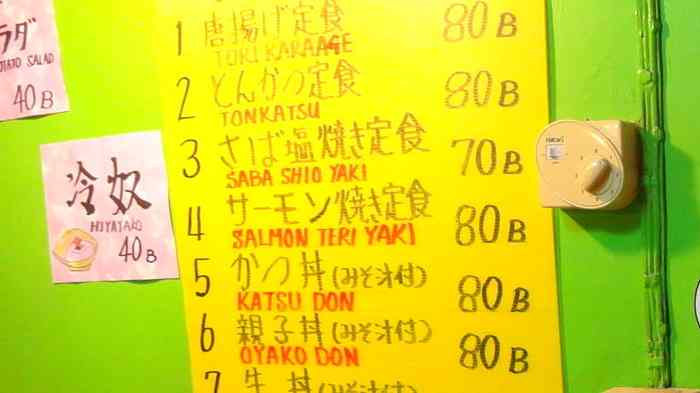 ラダ
TATO SALAD
40B
冷奴
HIYAYAKO
40B
1 唐揚げ定食 80B
TORI KARAAGE
2 とんかつ定食 80B
TONKATSU
3 さば塩焼き定食 70B
SABA SHIO YAKI
4 サーモン焼き定食 80B
SALMON TERI YAKI
5 かつ丼(みそ汁付) 80B
KATSU DON
6 親子丼(みそ汁付) 80B
OYAKO DON
7 牛丼(みそ汁付)